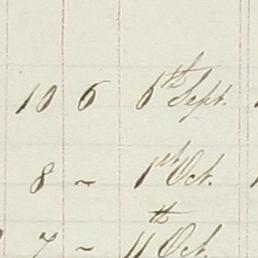 10 6 6th Sept.
8 ~ 1st Oct.
7 ~ 11th Oct.